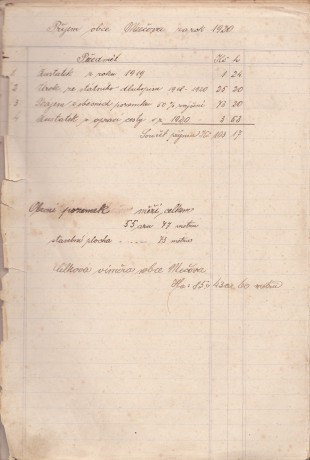 Příjem obce Mečova za rok 1920
Předmět Kč h
1 Zůstatek z roku 1919 1 24
2 Úrok ze státního dluhopisu 1918-1920 25 20
3 Nájem z obecních pozemků 73 20
4 Zůstatek z opravi cesty v r. 1920 3 53
Součet příjmů Kč 103 17
Obecní pozemek měří celkem
55 aru 47 metru
stavební plocha ...... 73 metru
Celková výměra obce Mečova